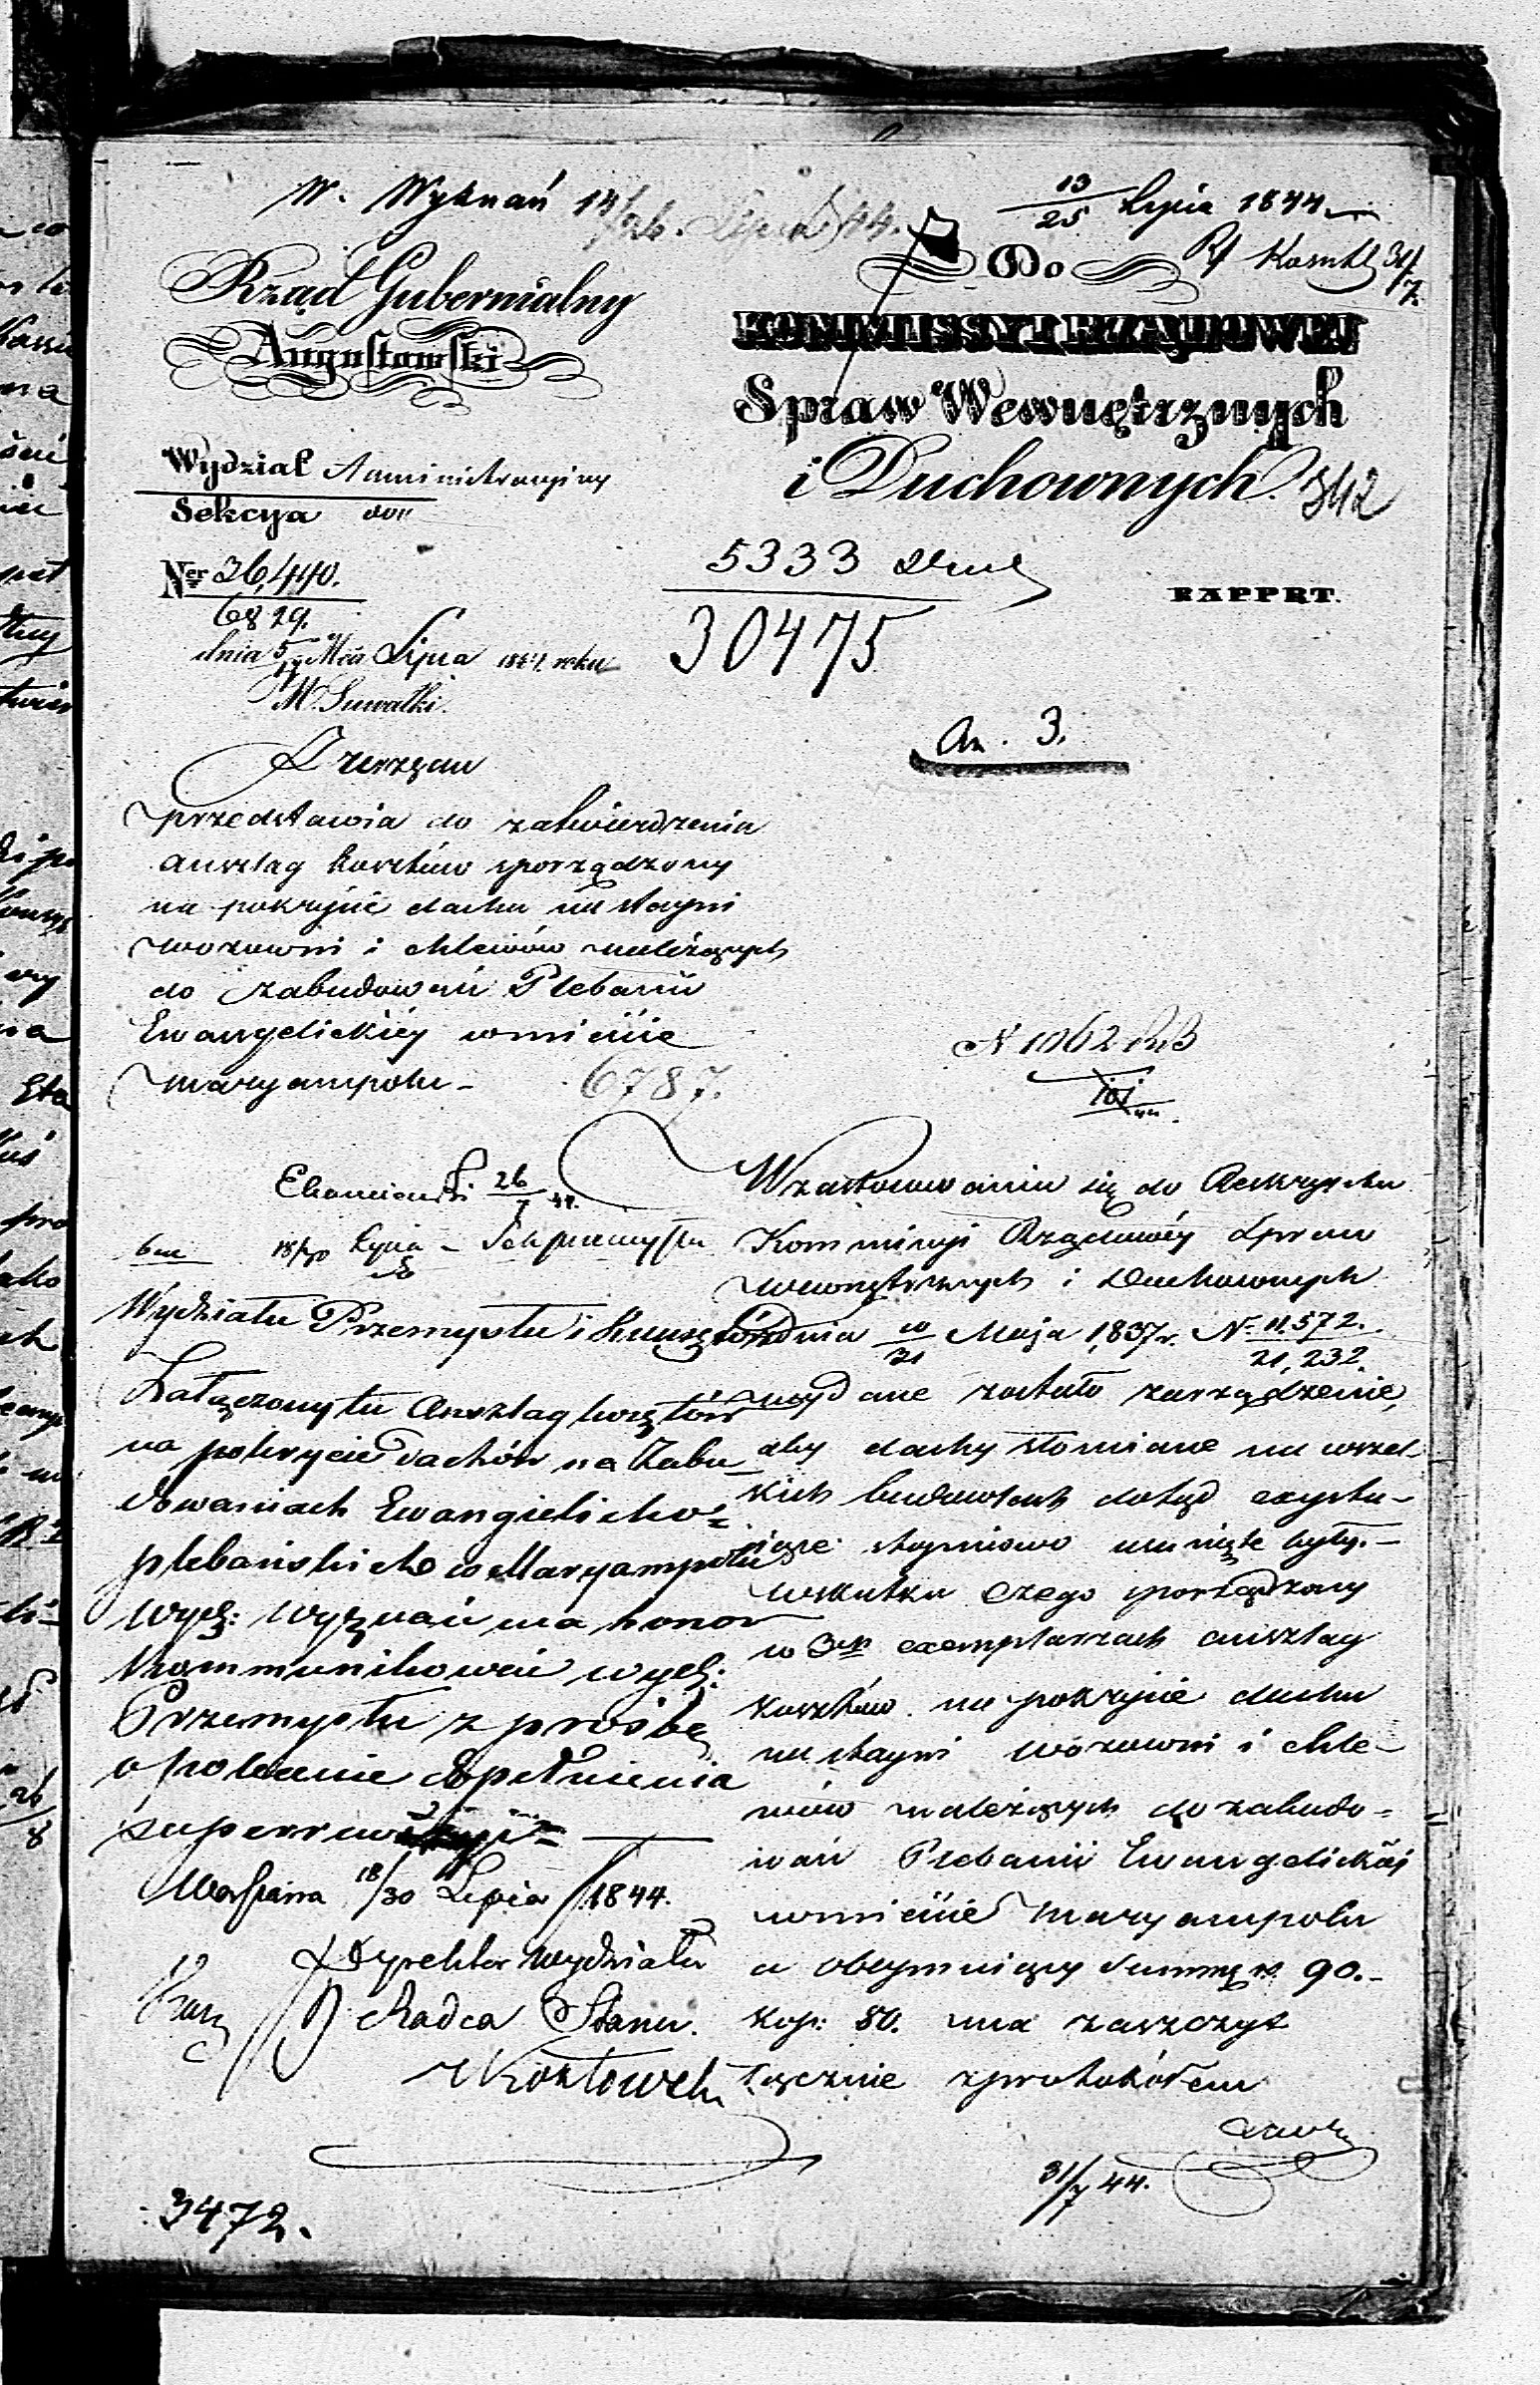 W. Wyznań 14/26. Lipca 44.
13/25 Lipca 1844
Rząd Gubernialny
Augustowski
Wydział Administracyjny
Sekcya
Ner 26,440.
6829.
dnia 5/17 Mca Lipca 1844 roku
M. Suwałki.
Do
KOMMISSYI RZĄDOWEJ
Spraw Wewnętrznych
i Duchownych.
342
5333
30475
RAPPRT.
An. 3.
przedstawia do zatwierdzenia
anszlag kosztów sporządzony
na pokrycie dachu na stayni
wozowni i chlewów należących
do zabudowań Plebanii
Ewangelickiéy w mieście
Maryampolu
6787.
N 1062
26/7 44.
18/30 Lipca
Wydziału Przemysłu i Kunsztów
Załączony tu Anszlag kosztów
na pokrycie dachów na Zabu
dowaniach Ewangielicko=
plebańskich w Maryampolu
Wydz: Wyznań ma honor
kommunikować wydz:
Przemysłu z prośbą
o polecenie dopełnienia
Warszawa 18/30 Lipca 1844.
Dyrektor Wydziału
Radca Stanu.
Kozłowski
3472.
W zastosowaniu się do Reskryptu
Kommissyi Rządowéy Spraw
Wewnętrznych i Duchownych
z dnia 19/31 Maja 1837 r. N. 11,572.
21,232.
wydane zostało zarządzenie,
aby dachy słomiane na wszel-
kich budowlach dotąd exystu-
iące stopniowo usunięte były.-
wskutku czego sporządzony
w 3ch exemplarzach anszlag
kosztów na pokrycie dachu
na stayni wozowni i chle-
wów należących do zabudo=
wań Plebanii Ewangelickiéj
w mieście Maryampolu
a obeymuiący Summę rs. 90.-
kop: 80. ma zaszczyt
łącznie z protokółem
31/7 44.